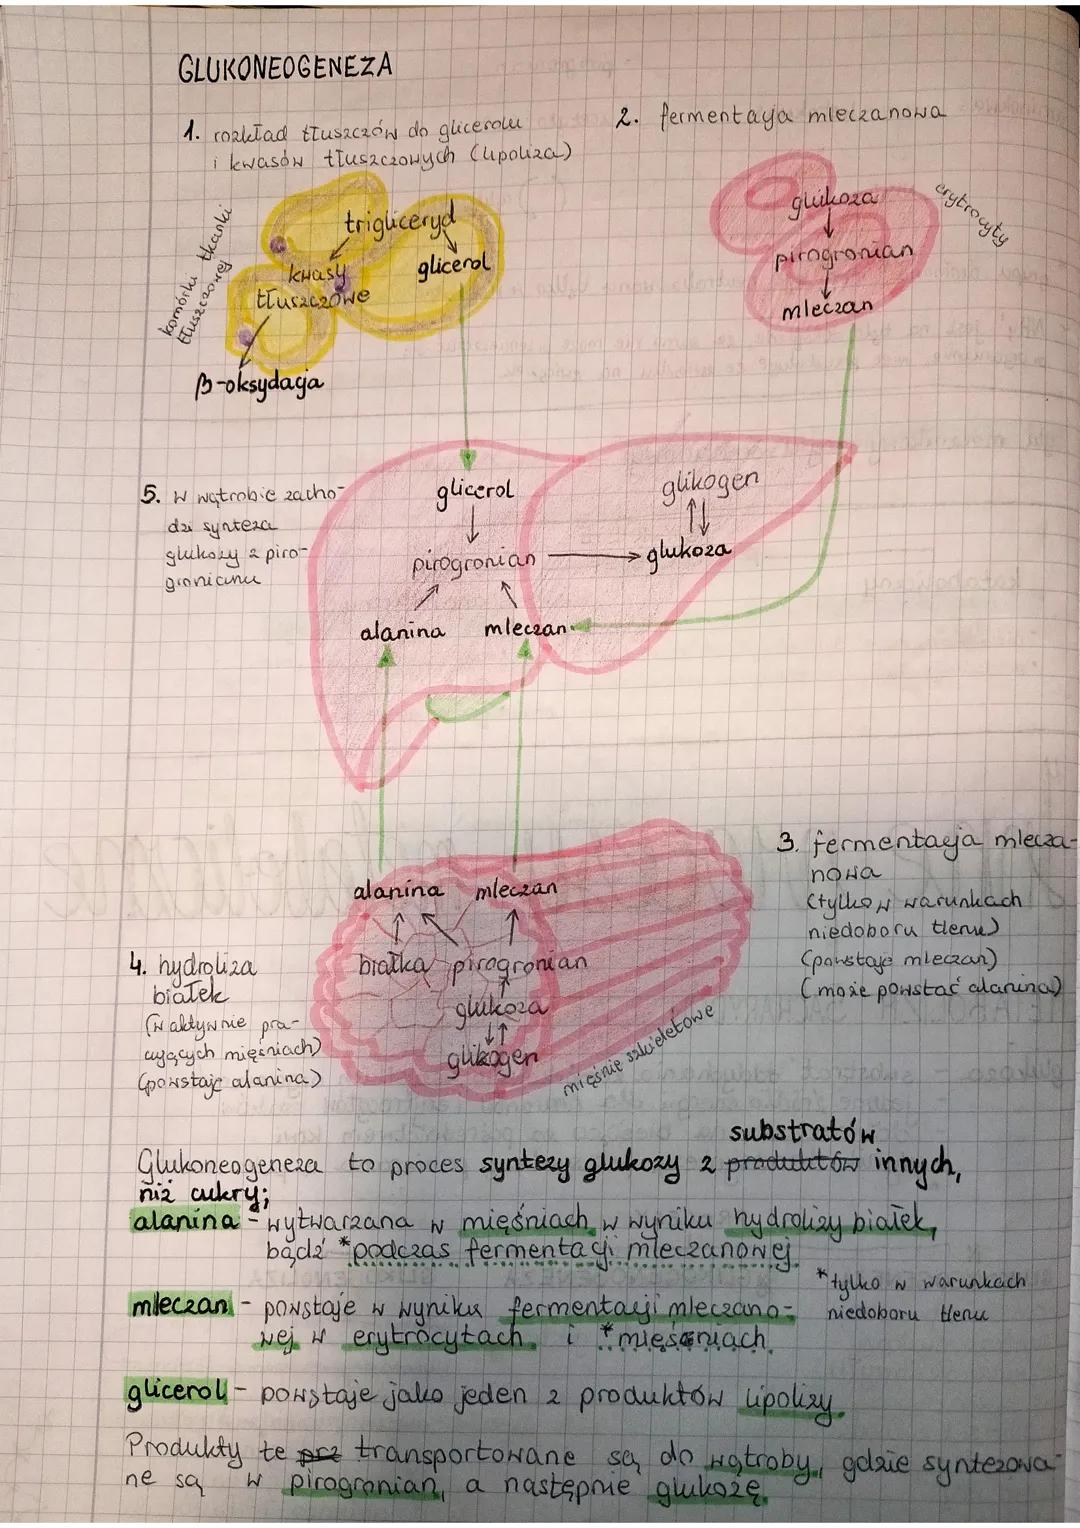 GLUKONEOGENEZA
1. rozkład tłuszczów do glicerolu
i kwasów tłuszczowych (lipoliza)
2. fermentacja mleczanowa
komórki tkanki
tłuszczowej
trigliceryd
kwasy
tłuszczowe
glicerol
β-oksydacja
glukoza
pirogronian
mleczan
erytrocyty
5. w wątrobie zacho-
dzi synteza
glukozy z piro-
gronianu
glicerol
glikogen
pirogronian
glukoza
alanina
mleczan
3. fermentacja mlecza-
nowa
(tylko w warunkach
niedoboru tlenu)
(powstaje mleczan)
(może powstać alanina)
alanina
mleczan
białka
pirogronian
glukoza
glikogen
mięśnie szkieletowe
4. hydroliza
białek
(w aktywnie pra-
cujących mięśniach)
(powstaje alanina)
substratów
Glukoneogeneza to proces syntezy glukozy z produktów innych,
niż cukry;
alanina - wytwarzana w mięśniach w wyniku hydrolizy białek,
bądź *podczas fermentacji mleczanowej
*tylko w warunkach
niedoboru tlenu
mleczan - powstaje w wyniku fermentacji mleczano-
wej w erytrocytach i *mięśniach
glicerol - powstaje jako jeden z produktów lipolizy
Produkty te prz transportowane są do wątroby, gdzie syntezowa-
ne są w pirogronian, a następnie glukozę.